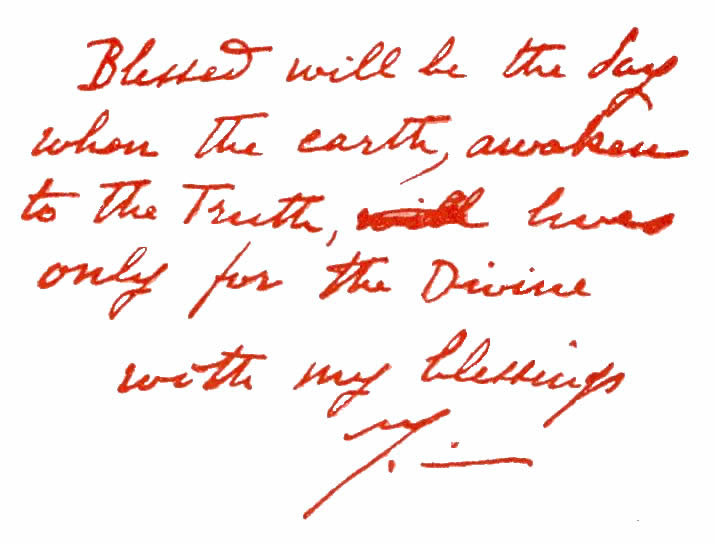 Blessed will be the day
when the earth, awaken
to the Truth, lives
only for the Divine
with my blessings